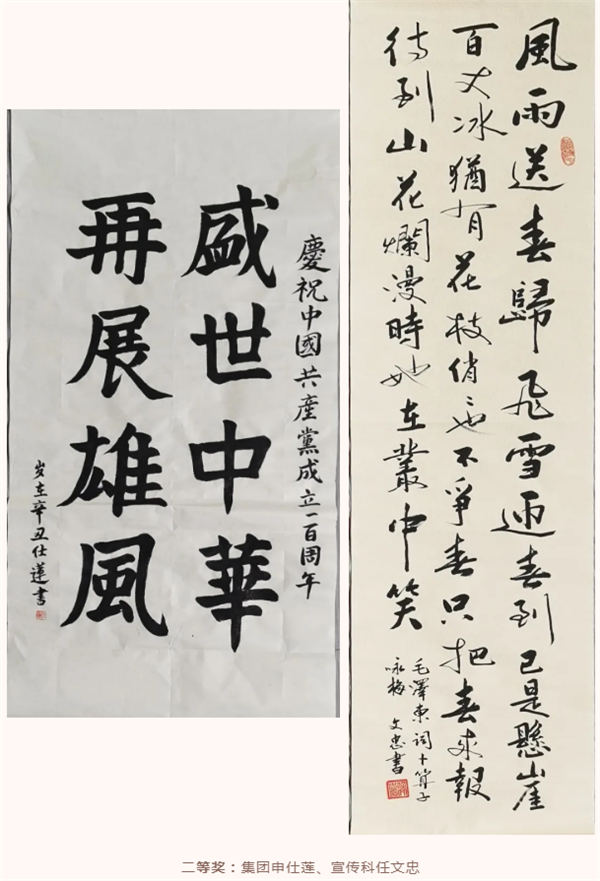 慶祝中國共產黨成立一百周年
盛世中華
再展雄風
岁在辛丑仕蓮書
風雨送春歸飛雪迎春到已是懸崖
百丈冰猶有花枝俏〻也不爭春只把春來報
待到山花爛漫時她在叢中笑
毛澤東詞卜算子
咏梅 文忠書
二等奖：集团申仕莲、宣传科任文忠